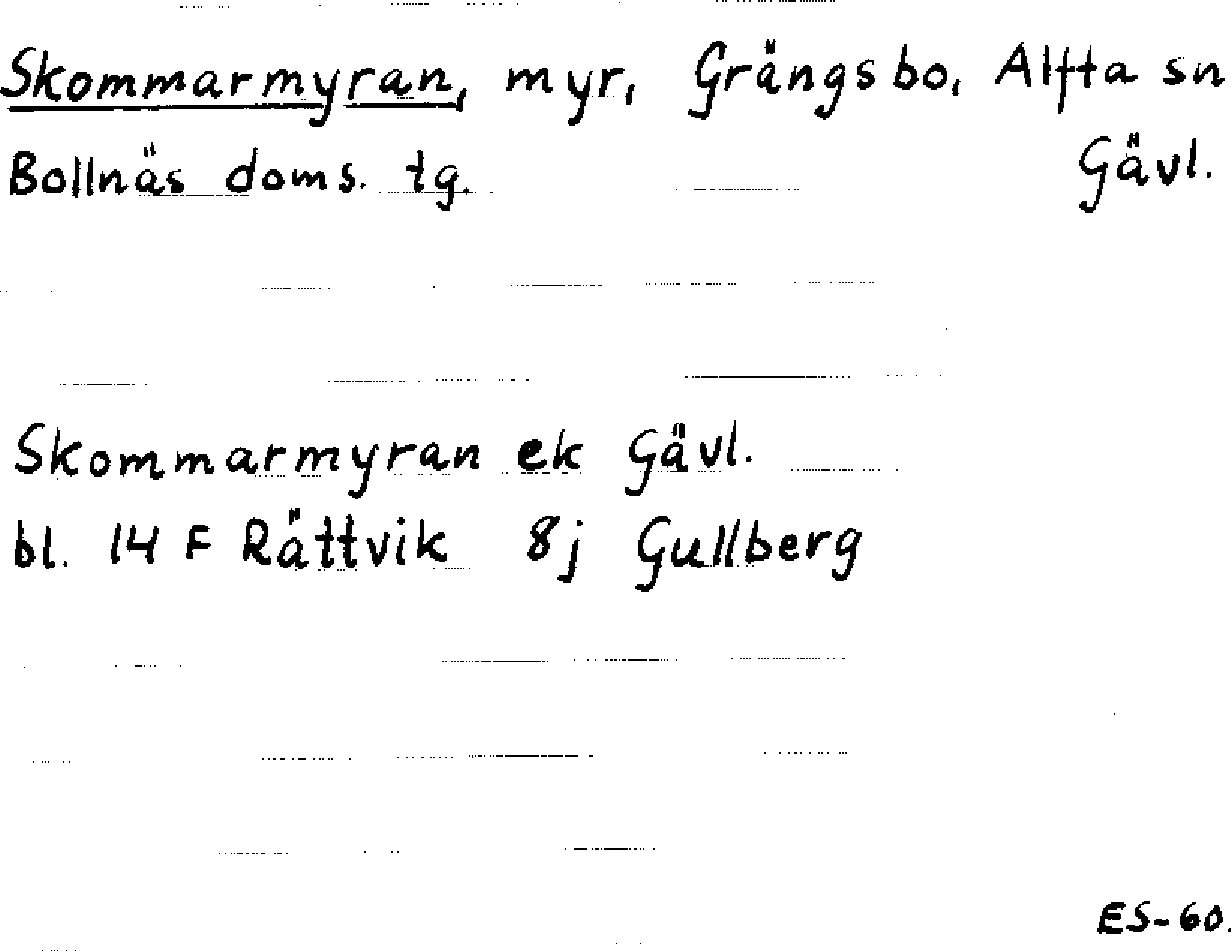 Skommarmyran, myr, Grängsbo, Alfta sn
Bollnäs doms. tg. Gävl.
Skommarmyran ek Gävl.
bl. 14 F Rättvik 8j Gullberg
ES-60.